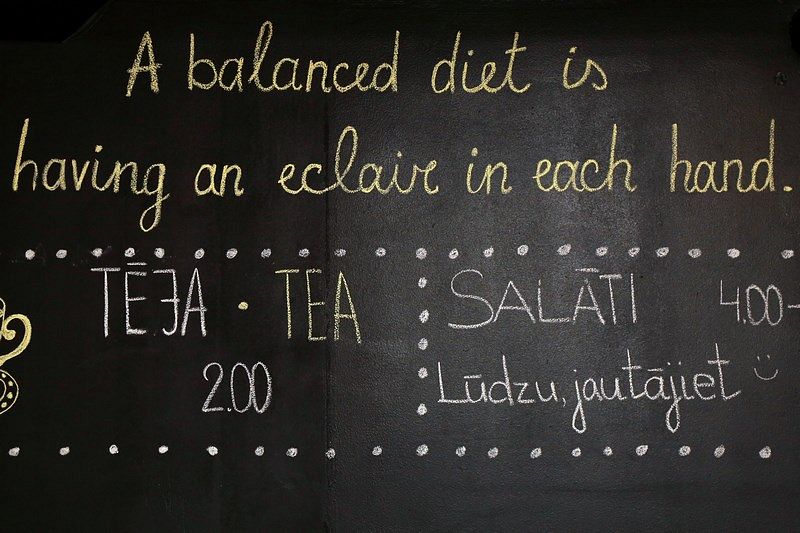 A balanced diet is
having an eclair in each hand.
TĒJA · TEA
2.00
SALĀTI 4.00-
Lūdzu, jautājiet